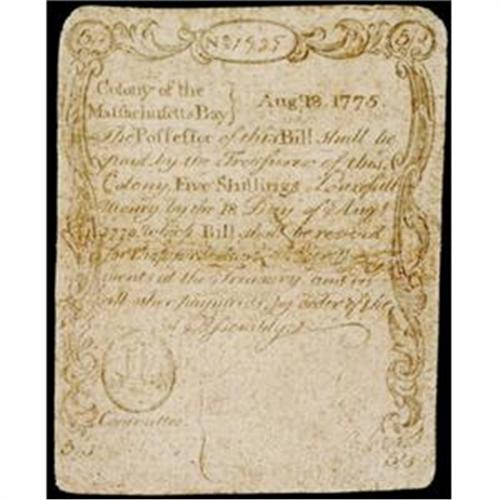 5/ No 1925 5/
Colony of the
Massachusetts Bay } Aug. 18. 1775.
The Possessor of this Bill shall be
paid by the Treasurer of this
Colony, Five Shillings Lawfull
money by the 18 Day of Aug.t
which Bill shall be receivd
for
ments at the Treasury and in
all other payments by order of the
Assembly
Committee
5/ 5/